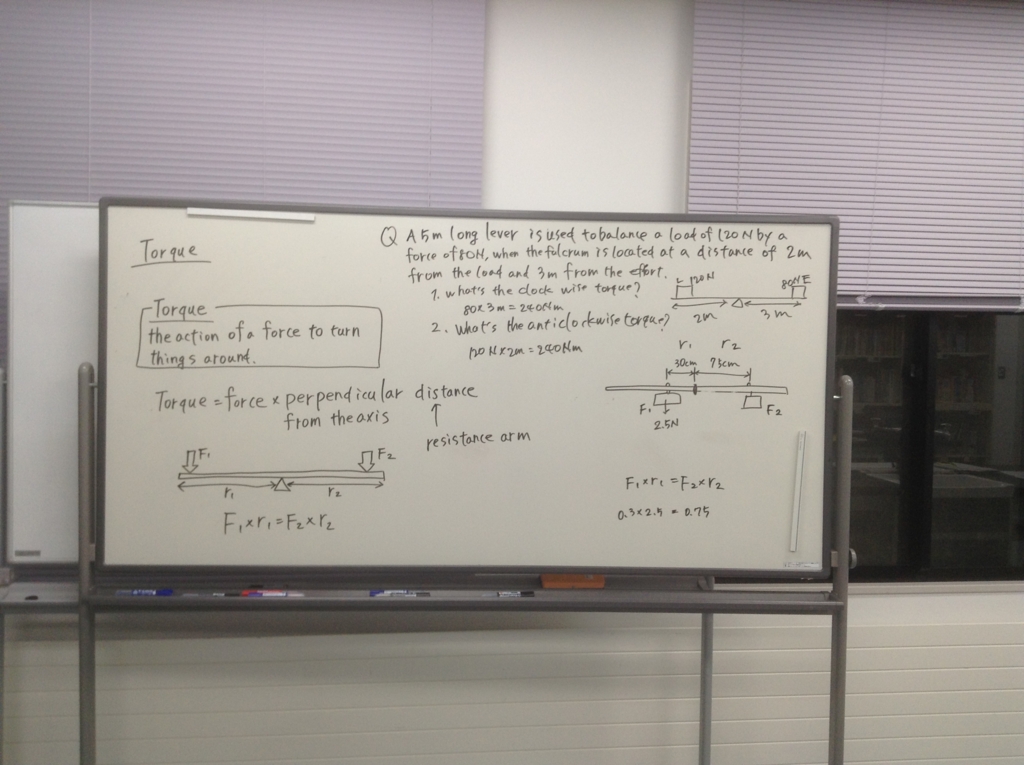 Torque
Torque
the action of a force to turn
things around.
Torque = force × perpendicular distance
from the axis
↑
resistance arm
F₁ F₂
r₁ r₂
F₁×r₁ = F₂×r₂
Q A 5m long lever is used to balance a load of 120N by a
force of 80N, when the fulcrum is located at a distance of 2m
from the load and 3m from the effort.
1. What's the clock wise torque?
80×3m = 240Nm
2. What's the anticlockwise torque?
120N×2m = 240Nm
L 120N 80N E
2m 3m
r₁ r₂
30cm
F₁ F₂
2.5N
F₁×r₁ = F₂×r₂
0.3×2.5 = 0.75